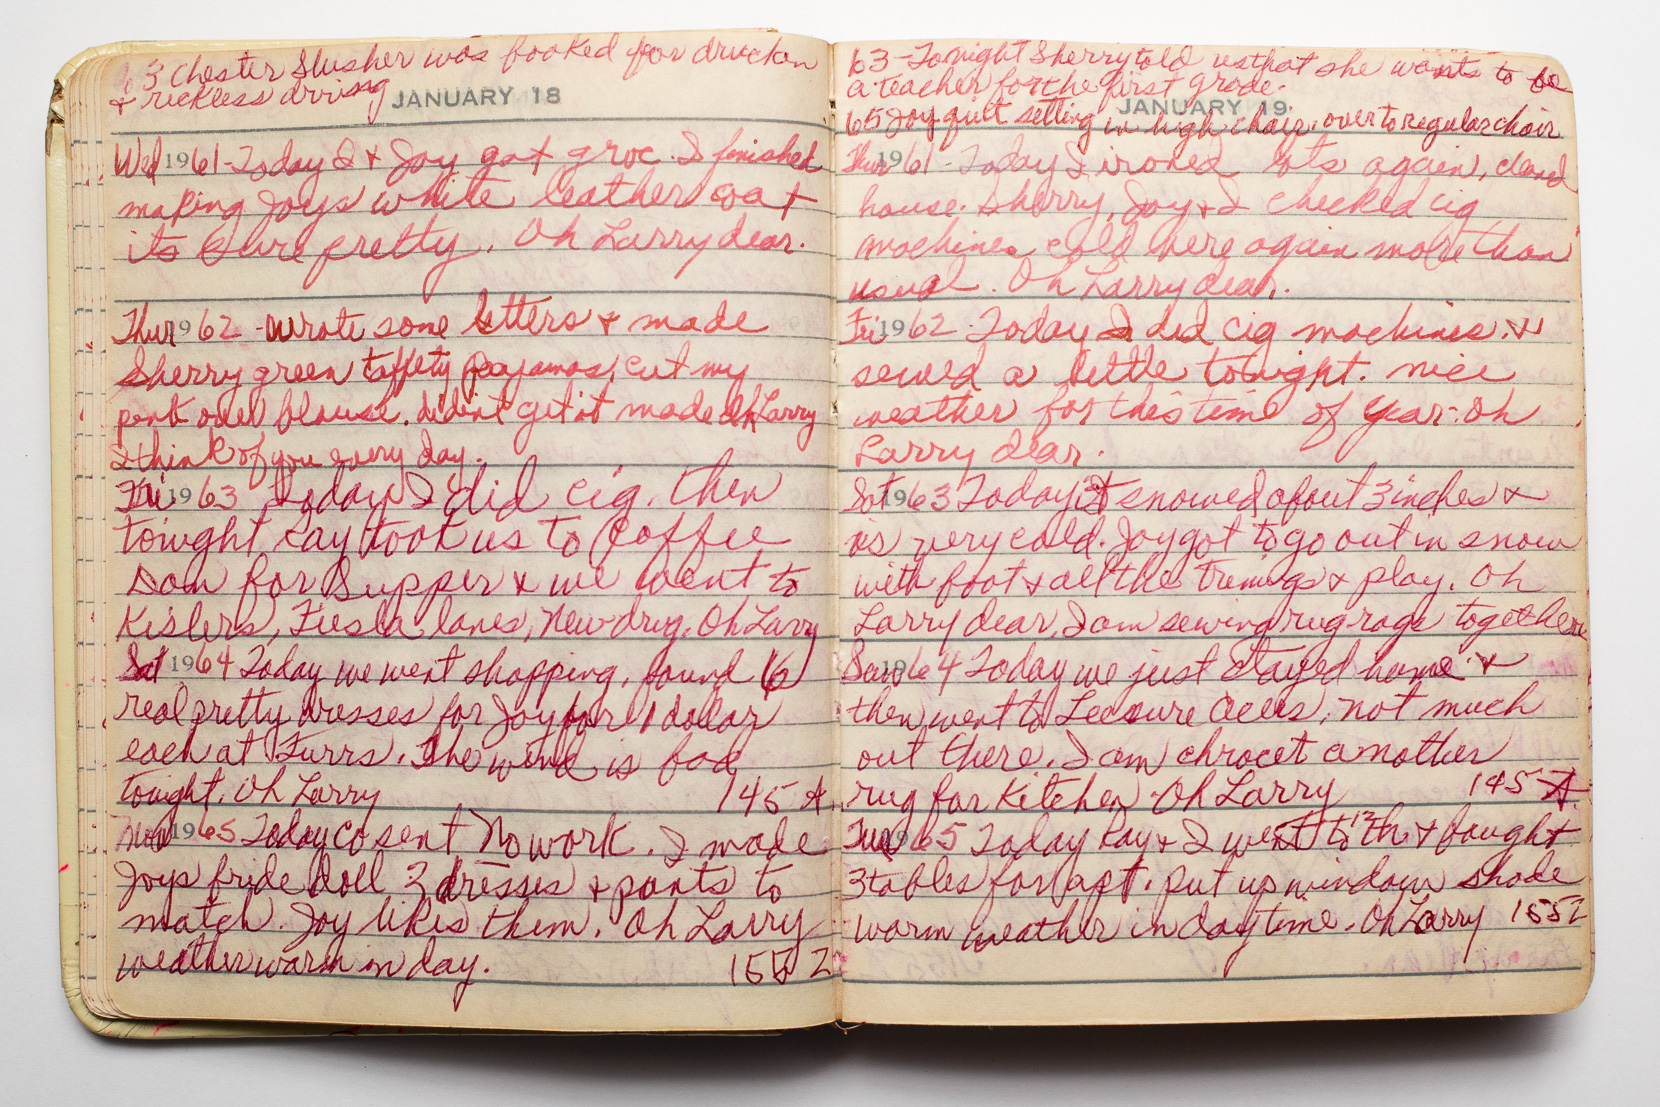 63 Chester Slusher was booked for drunken
& reckless driving
JANUARY 18
Wed 1961 - Today I & Joy got groc. I finished
making Joys white leather coat
its sure pretty. Oh Larry dear.
Thur 1962 - wrote some letters & made
Sherry green taffety pajamas, cut my
pink over blouse. didint get it made Oh Larry
I think of you every day.
Fri 1963 Today I did cig. then
tonight Ray took us to Coffee
Dan for Supper & we went to
Kislers, Fiesta lanes, New-drug. Oh Larry
Sat 1964 Today we went shopping, found 16
real pretty dresses for Joy for 1 dollar
each at Furrs. The wind is bad
tonight. Oh Larry 145 A
Mon 1965 Today Co sent No work. I made
Joys bride doll 3 dresses & pants to
match. Joy likes them. Oh Larry
weather warm in day. 155 Z
63 - Tonight Sherry told us that she wants to be
a teacher for the first grade.
JANUARY 19
65 Joy quit setting in high chair, over to regular chair
Thur 1961 - Today I ironed lots again, cleaned
house. Sherry, Joy & I checked cig
machines cold here again more than
usual. Oh Larry dear.
Fri 1962 - Today I did cig machines. &
sewed a little tonight. nice
weather for this time of year. Oh
Larry dear.
Sat 1963 Today it snowed about 3 inches &
is very cold. Joy got to go out in snow
with boot & all the trimings & play. Oh
Larry dear, I am sewing rug rags together
Sun 1964 Today we just stayed home &
then went to Leesure Acers, not much
out there. I am chrocet another
rug for Kitchen - Oh Larry 145 A
Tue 1965 Today Ray & I went to 12th & bought
3 tables for apt. put up window shade
warm weather in daytime. Oh Larry 155 Z